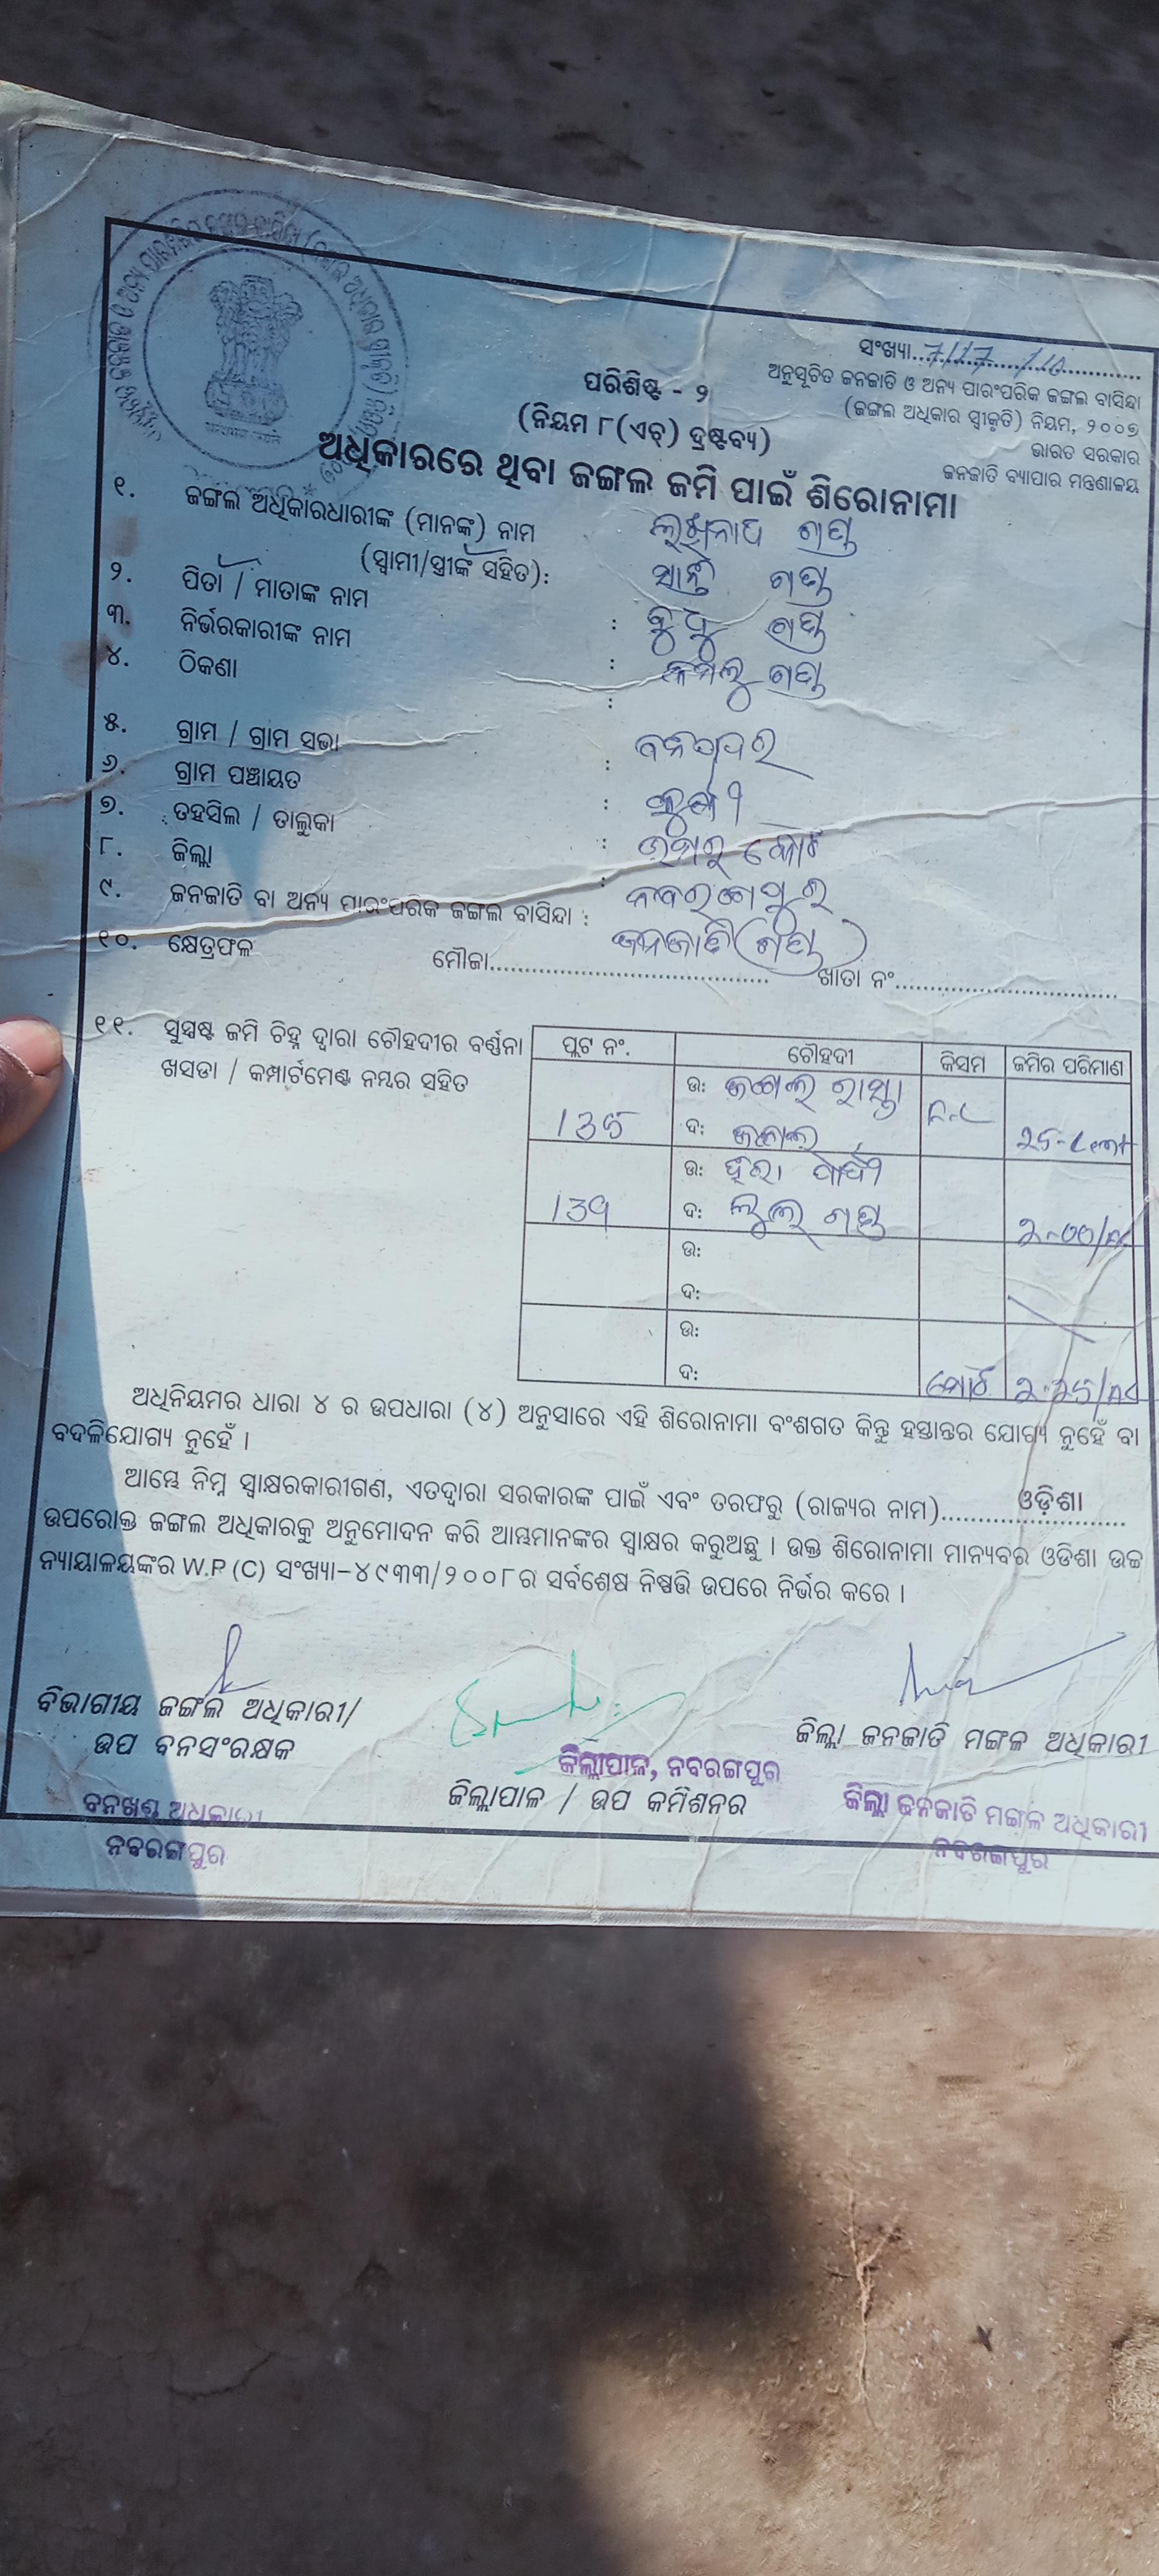 ସଂଖ୍ୟା...7/17.../10...
ଅନୁସୂଚିତ ଜନଜାତି ଓ ଅନ୍ୟ ପାରଂପରିକ ଜଙ୍ଗଲ ବାସିନ୍ଦା
(ଜଙ୍ଗଲ ଅଧିକାର ସ୍ୱୀକୃତି) ନିୟମ, ୨୦୦୭
ଭାରତ ସରକାର
ଜନଜାତି ବ୍ୟାପାର ମନ୍ତ୍ରଣାଳୟ
ପରିଶିଷ୍ଟ - ୨
(ନିୟମ ୮(ଏଚ୍) ଦ୍ରଷ୍ଟବ୍ୟ)
ଅଧିକାରରେ ଥିବା ଜଙ୍ଗଲ ଜମି ପାଇଁ ଶିରୋନାମା
୧. ଜଙ୍ଗଲ ଅଧିକାରଧାରୀଙ୍କ (ମାନଙ୍କ) ନାମ ଲଖିନାଥ ଗଣ୍ଡ
(ସ୍ୱାମୀ/ସ୍ତ୍ରୀଙ୍କ ସହିତ): ଗଣ୍ଡ
୨. ପିତା / ମାତାଙ୍କ ନାମ : ଗଣ୍ଡ
୩. ନିର୍ଭରକାରୀଙ୍କ ନାମ : ଗଣ୍ଡ
୪. ଠିକଣା :
୫. ଗ୍ରାମ / ଗ୍ରାମ ସଭା :
୬. ଗ୍ରାମ ପଞ୍ଚାୟତ :
୭. ତହସିଲ / ତାଲୁକା : ଉମରକୋଟ
୮. ଜିଲ୍ଲା : ନବରଙ୍ଗପୁର
୯. ଜନଜାତି ବା ଅନ୍ୟ ପାରଂପରିକ ଜଙ୍ଗଲ ବାସିନ୍ଦା : ଜନଜାତି (ଗଣ୍ଡ)
୧୦. କ୍ଷେତ୍ରଫଳ ମୌଜା........................ ଖାତା ନଂ........................
୧୧. ସୁସ୍ପଷ୍ଟ ଜମି ଚିହ୍ନ ଦ୍ୱାରା ଚୌହଦୀର ବର୍ଣ୍ଣନା
ଖସଡା / କମ୍ପାର୍ଟମେଣ୍ଟ ନମ୍ବର ସହିତ
ପ୍ଲଟ ନଂ. ଚୌହଦୀ କିସମ ଜମିର ପରିମାଣ
ଉଃ ଜଙ୍ଗଲ ରାସ୍ତା
135 ଦଃ ଜଙ୍ଗଲ 25-Cent
ଉଃ
139 ଦଃ ଗଣ୍ଡ 2-00/Ac
ଉଃ
ଦଃ
ଉଃ
ଦଃ ମୋଟ 2.25/Ac
ଅଧିନିୟମର ଧାରା ୪ ର ଉପଧାରା (୪) ଅନୁସାରେ ଏହି ଶିରୋନାମା ବଂଶଗତ କିନ୍ତୁ ହସ୍ତାନ୍ତର ଯୋଗ୍ୟ ନୁହେଁ ବା
ବଦଳିଯୋଗ୍ୟ ନୁହେଁ ।
ଆମ୍ଭେ ନିମ୍ନ ସ୍ୱାକ୍ଷରକାରୀଗଣ, ଏତଦ୍ୱାରା ସରକାରଙ୍କ ପାଇଁ ଏବଂ ତରଫରୁ (ରାଜ୍ୟର ନାମ)......ଓଡ଼ିଶା......
ଉପରୋକ୍ତ ଜଙ୍ଗଲ ଅଧିକାରକୁ ଅନୁମୋଦନ କରି ଆମ୍ଭମାନଙ୍କର ସ୍ୱାକ୍ଷର କରୁଅଛୁ । ଉକ୍ତ ଶିରୋନାମା ମାନ୍ୟବର ଓଡିଶା ଉଚ୍ଚ
ନ୍ୟାୟାଳୟଙ୍କର W.P.(C) ସଂଖ୍ୟା-୪୯୩୩/୨୦୦୮ର ସର୍ବଶେଷ ନିଷ୍ପତ୍ତି ଉପରେ ନିର୍ଭର କରେ ।
ବିଭାଗୀୟ ଜଙ୍ଗଲ ଅଧିକାରୀ/
ଉପ ବନସଂରକ୍ଷକ
ବନଖଣ୍ଡ ଅଧିକାରୀ
ନବରଙ୍ଗପୁର
ଜିଲ୍ଲାପାଳ, ନବରଙ୍ଗପୁର
ଜିଲ୍ଲାପାଳ / ଉପ କମିଶନର
ଜିଲ୍ଲା ଜନଜାତି ମଙ୍ଗଳ ଅଧିକାରୀ
ଜିଲ୍ଲା ଜନଜାତି ମଙ୍ଗଳ ଅଧିକାରୀ
ନବରଙ୍ଗପୁର